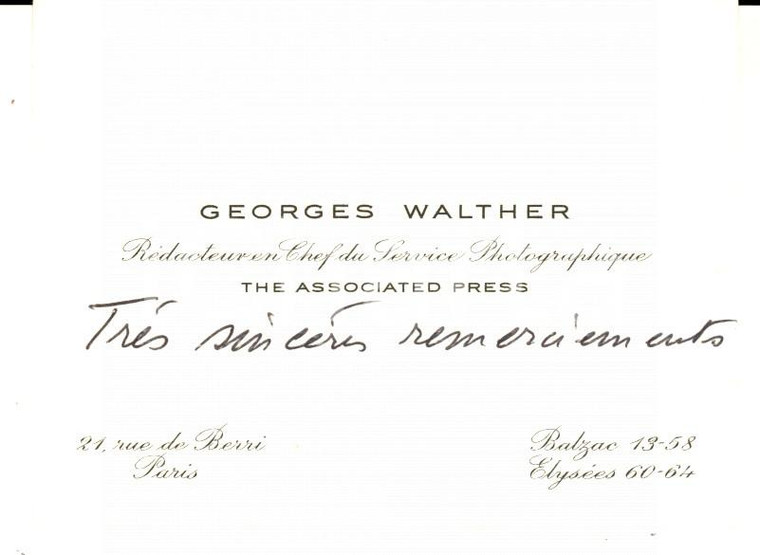 GEORGES WALTHER
Rédacteur en Chef du Service Photographique
THE ASSOCIATED PRESS
Très sincères remerciements
21, rue de Berri
Paris
Balzac 13-58
Elysées 60-64